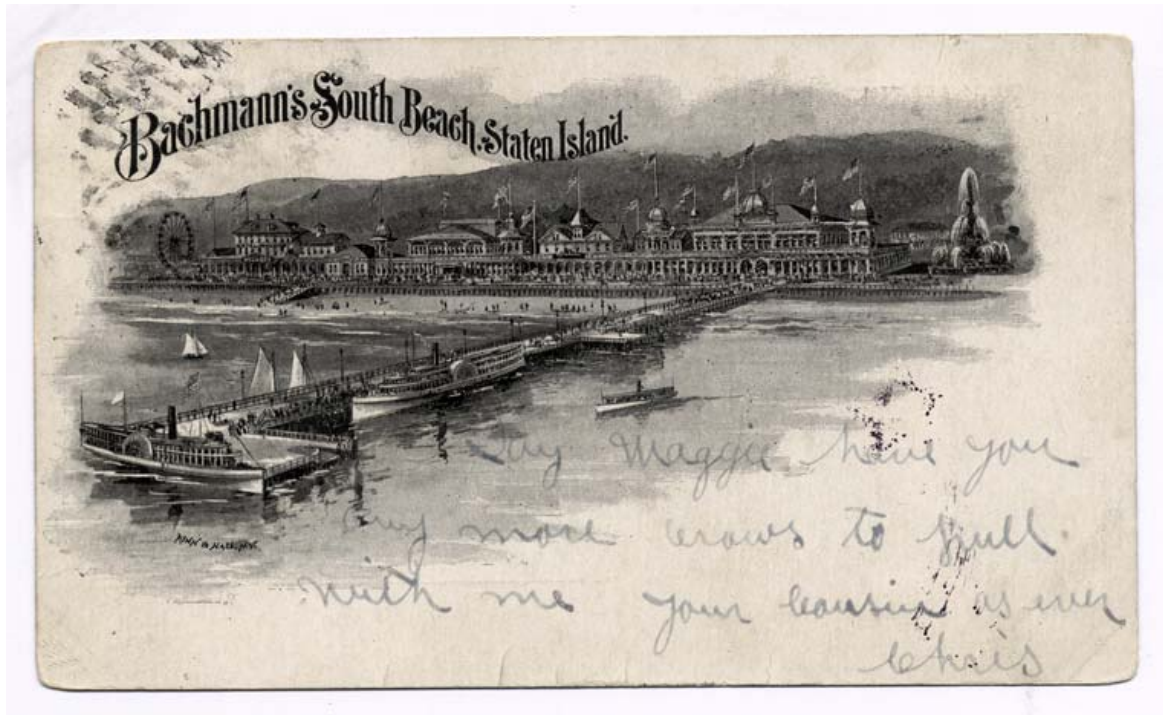 Bachmann's South Beach, Staten Island.
Say Maggie have you
any more crows to pull
with me your cousin as ever
Chris